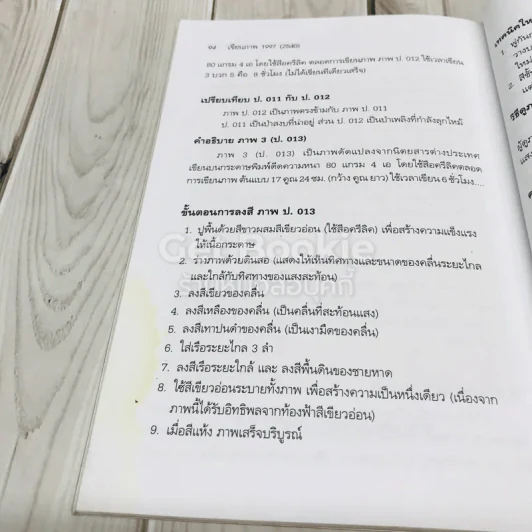 ๑๔ เขียนภาพ 1997 (2540)
80 แกรม 4 เอ โดยใช้สีอครีลิค ตลอดการเขียนภาพ ภาพ ป. 012 ใช้เวลาเขียน
3 บวก 5 คือ 8 ชั่วโมง (ไม่ได้เขียนทีเดียวเสร็จ)
เปรียบเทียบ ป. 011 กับ ป. 012
ภาพ ป. 012 เป็นภาพตรงข้ามกับ ภาพ ป. 011
ป. 011 เป็นป่าสงบที่น่าอยู่ ส่วน ป. 012 เป็นป่าเพลิงที่กำลังลุกไหม้
คำอธิบาย ภาพ 3 (ป. 013)
ภาพ 3 (ป. 013) เป็นภาพดัดแปลงจากนิตยสารต่างประเทศ
เขียนบนกระดาษพิมพ์ดีดความหนา 80 แกรม 4 เอ โดยใช้สีอครีลิคตลอด
การเขียนภาพ ต้นแบบ 17 คูณ 24 ซม. (กว้าง คูณ ยาว) ใช้เวลาเขียน 6 ชั่วโมง....
ขั้นตอนการลงสี ภาพ ป. 013
1. ปูพื้นด้วยสีขาวผสมสีเขียวอ่อน (ใช้สีอครีลิค) เพื่อสร้างความแข็งแรง
ให้เนื้อกระดาษ
2. ร่างภาพด้วยดินสอ (แสดงให้เห็นทิศทางและขนาดของคลื่นระยะไกล
และใกล้กับทิศทางของแสงสะท้อน)
3. ลงสีเขียวของคลื่น
4. ลงสีเหลืองของคลื่น (เป็นคลื่นที่สะท้อนแสง)
5. ลงสีเทาปนดำของคลื่น (เป็นเงามืดของคลื่น)
6. ใส่เรือระยะไกล 3 ลำ
7. ลงสีเรือระยะใกล้ และ ลงสีพื้นดินของชายหาด
8. ใช้สีเขียวอ่อนระบายทั้งภาพ เพื่อสร้างความเป็นหนึ่งเดียว (เนื่องจาก
ภาพนี้ได้รับอิทธิพลจากท้องฟ้าสีเขียวอ่อน)
9. เมื่อสีแห้ง ภาพเสร็จบริบูรณ์